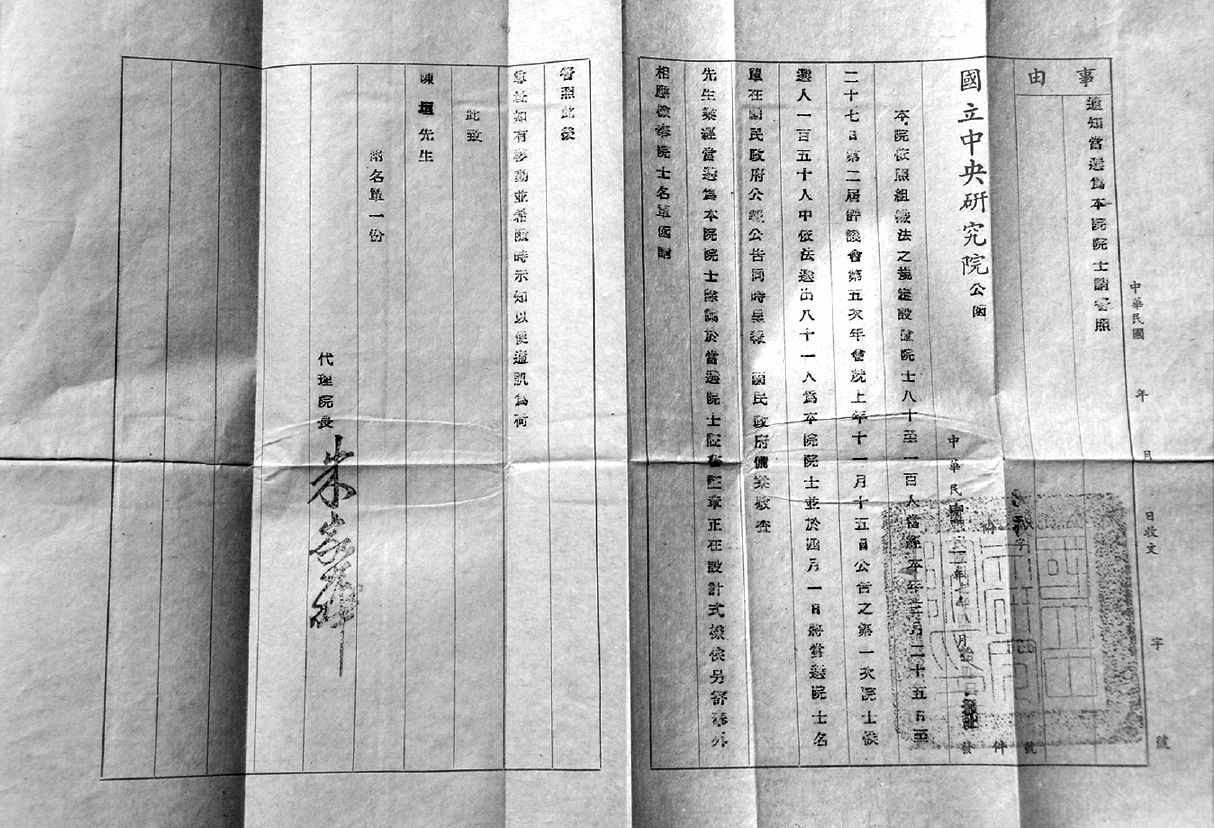 事由
通知當選爲本院院士請查照
中華民國 年 月 日收文 字 號
國立中央研究院公函
中華民國
發 件 號
本院依照組織法之規定設置院士八十至一百人當經本年三月二十五日至
二十七日第二屆評議會第五次年會就上年十一月十五日公告之第一次院士候
選人一百五十人中依法選出八十一人爲本院院士並於四月一日將當選院士名
單在國民政府公報公告同時呈報 國民政府備案敬查
先生業經當選爲本院院士除關於當選院士證書證章正在設計式樣俟另寄奉外
相應檢奉院士名單函請
查照此後
尊址如有移動並希隨時示知以便通訊爲荷
此致
陳 垣先生
附名單一份
代理院長 朱家驊